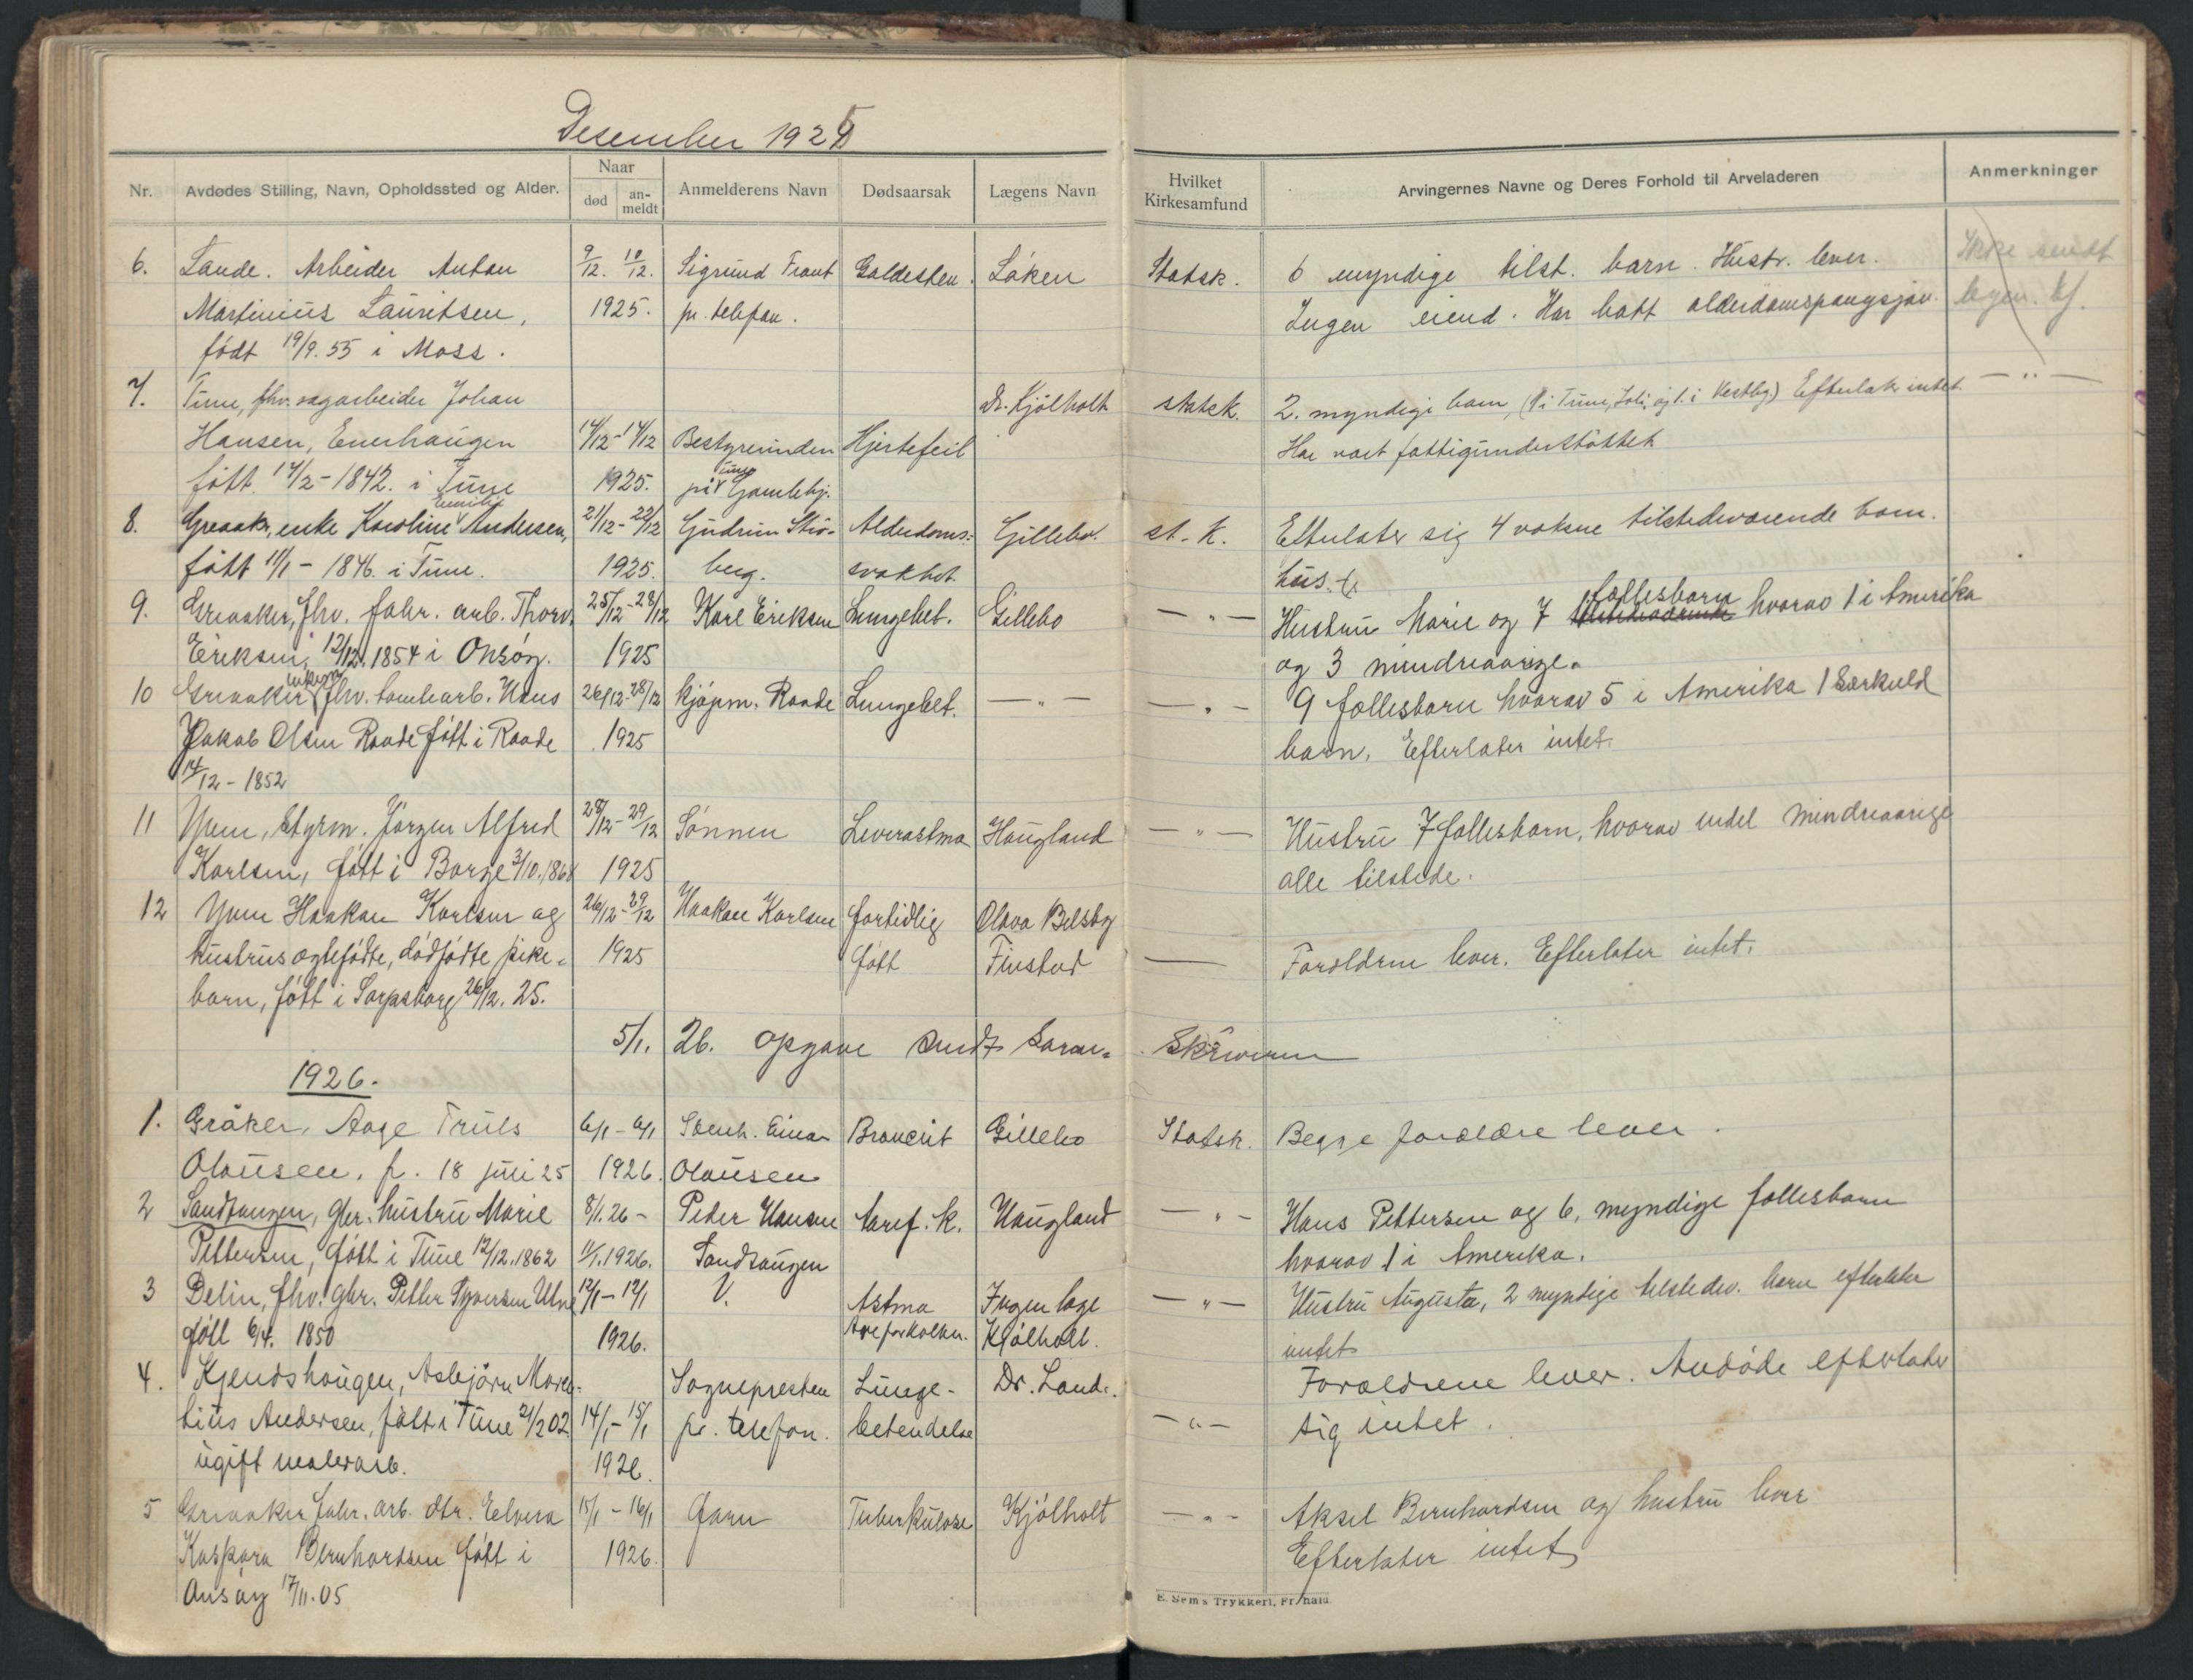 Desember 1925
Nr.
Avdødes Stilling, Navn, Opholdssted og Alder.
Naar
død
an-
meldt
Anmelderens Navn
Dødsaarsak
Lægens Navn
Hvilket
Kirkesamfund
Arvingernes Navne og Deres Forhold til Arveladeren
Anmerkninger
6. Lande. Arbeider Anton 9/12. 10/12. Sigrund Galdesten. Løken Statsk. 6 myndige tilst. barn. Hustr. lever. Ikke sendt
Martinius Lauritsen, 1925. pr. telefon. Ingen eiend. Har hatt alderdomspangsjon.
født 19/9. 55 i Moss.
7. Tune, fhv. sagarbeider Johan Dr. Kjølholt statsk. 2. myndige barn, (1 i Tune, og 1. i Vestby.) Efterlat intet. — " —
Hansen, Enerhaugen 14/12 - 14/12 Bestyrerinden Hjertefeil Har vært fattigunderstøttet
født 14/2 - 1842. i Tune 1925. på Tune Gamlehj.
8. Greaaker, enke Karoline Emilie Andersen, 21/12 - 22/12 Gudrun Strø- Alderdoms- Gillebo. st. k. Efterlater sig 4 voksne tilstedeværende barn.
født 11/1 - 1846. i Tune. 1925. berg. svakhet hus.
9. Greaaker, fhv. fabr. arb. Thorv. 25/12 - 28/12 Karl Eriksen Lungebet. Gillebo — " — Hustru Marie og 7 fællesbarn hvorav 1 i Amerika
Eriksen, 12/12. 1854 i Onsøy. 1925 og 3 mindreaarige.
10 Greaaker enkem. fhv. tomtearb. Hans 26/12 - 28/12 kjøpm. Raade Lungebet. — " — — " — 9 fællesbarn hvorav 5 i Amerika 1 Særkuld
Jakob Olsen Raade født i Raade 1925 barn. Efterlater intet.
14/12 - 1852
11 Yven, Styrm. Jørgen Alfred 28/12 - 29/12 Sønnen Leverastma Haugland — " — Hustru 7 fællesbarn, hvorav endel mindreaarige
Karlsen, født i Borge 3/10. 1868 1925 alle tilstede.
12 Yven Haakon Karlsen og 26/12 - 29/12 Haakon Karlsen fortidlig Olava Belsby
hustrus ægtefødte, dødfødte pike- 1925 født Finstad — Forældrene lever. Efterlater intet.
barn, født i Sarpsborg 26/12. 25.
5/1. 26. opgave sendt Soren- Skriveren
1926.
1. Gråker, Aage Truls 6/1 - 6/1 Stenh. Einar Broncit Gillebo Statsk. Begge forældre lever.
Olausen, f. 18 juli 25 1926. Olausen
2 Sandtangen, gbr. hustru Marie 8/1. 26 - Peder Hansen Haugland — " — Hans Pettersen og 6, myndige fællesbarn
Pettersen, født i Tune 12/12. 1862 11/1. 1926. Sandtangen hvorav 1 i Amerika.
3 Delin, fhv. gbr. Petter Syversen Utne 12/1 - 12/1 V. Astma Ingen læge — " — Hustru Augusta, 2 myndige tilstedev. barn efterlater
født 6/4. 1850 1926. Areforkalkn. Kjølholt. intet
4. Kjendshaugen, Asbjørn Mare- Sognepresten Lunge- Dr. Lande. Forældrene lever. Avdøde efterlater
tius Andersen, født i Tune 21/2 02. 14/1 - 15/1 pr. telefon. betendelse — " — sig intet.
ugift malerarb. 1926.
5 Greaaker fabr. arb. dtr. Elvera 15/1 - 16/1 Faren Tuberkulose Kjølholt — " — Aksel Bernhardsen og hustru lever
Kaspara Bernhardsen født i 1926. Efterlater intet
Onsøy 17/11. 05
E. Sem's Trykkeri, Fr.hald.